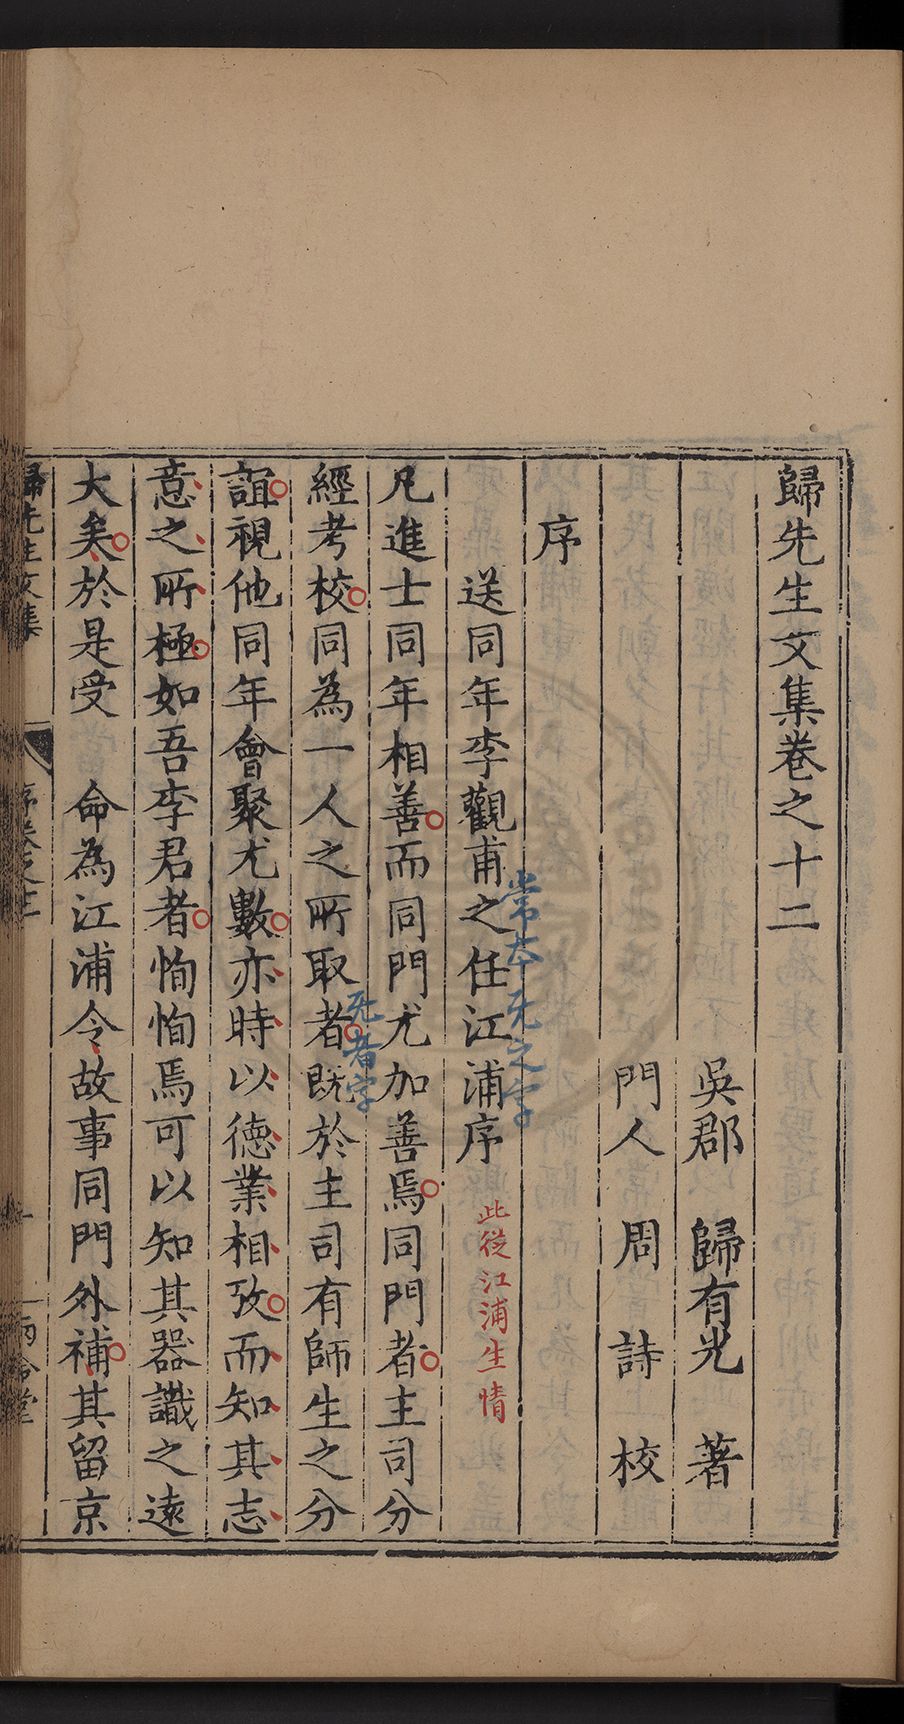 歸先生文集卷之十二
吳郡 歸有光 著
門人 周 詩 校
序
送同年李觀甫之任江浦序
此從江浦生情
常本无之字
凡進士同年相善而同門尤加善焉同門者主司分
經考校同為一人之所取者既於主司有師生之分
无者字
誼視他同年會聚尤數亦時以德業相攷而知其志
意之所極如吾李君者恂恂焉可以知其器識之遠
大矣於是受 命為江浦令故事同門外補其留京
歸先生文集